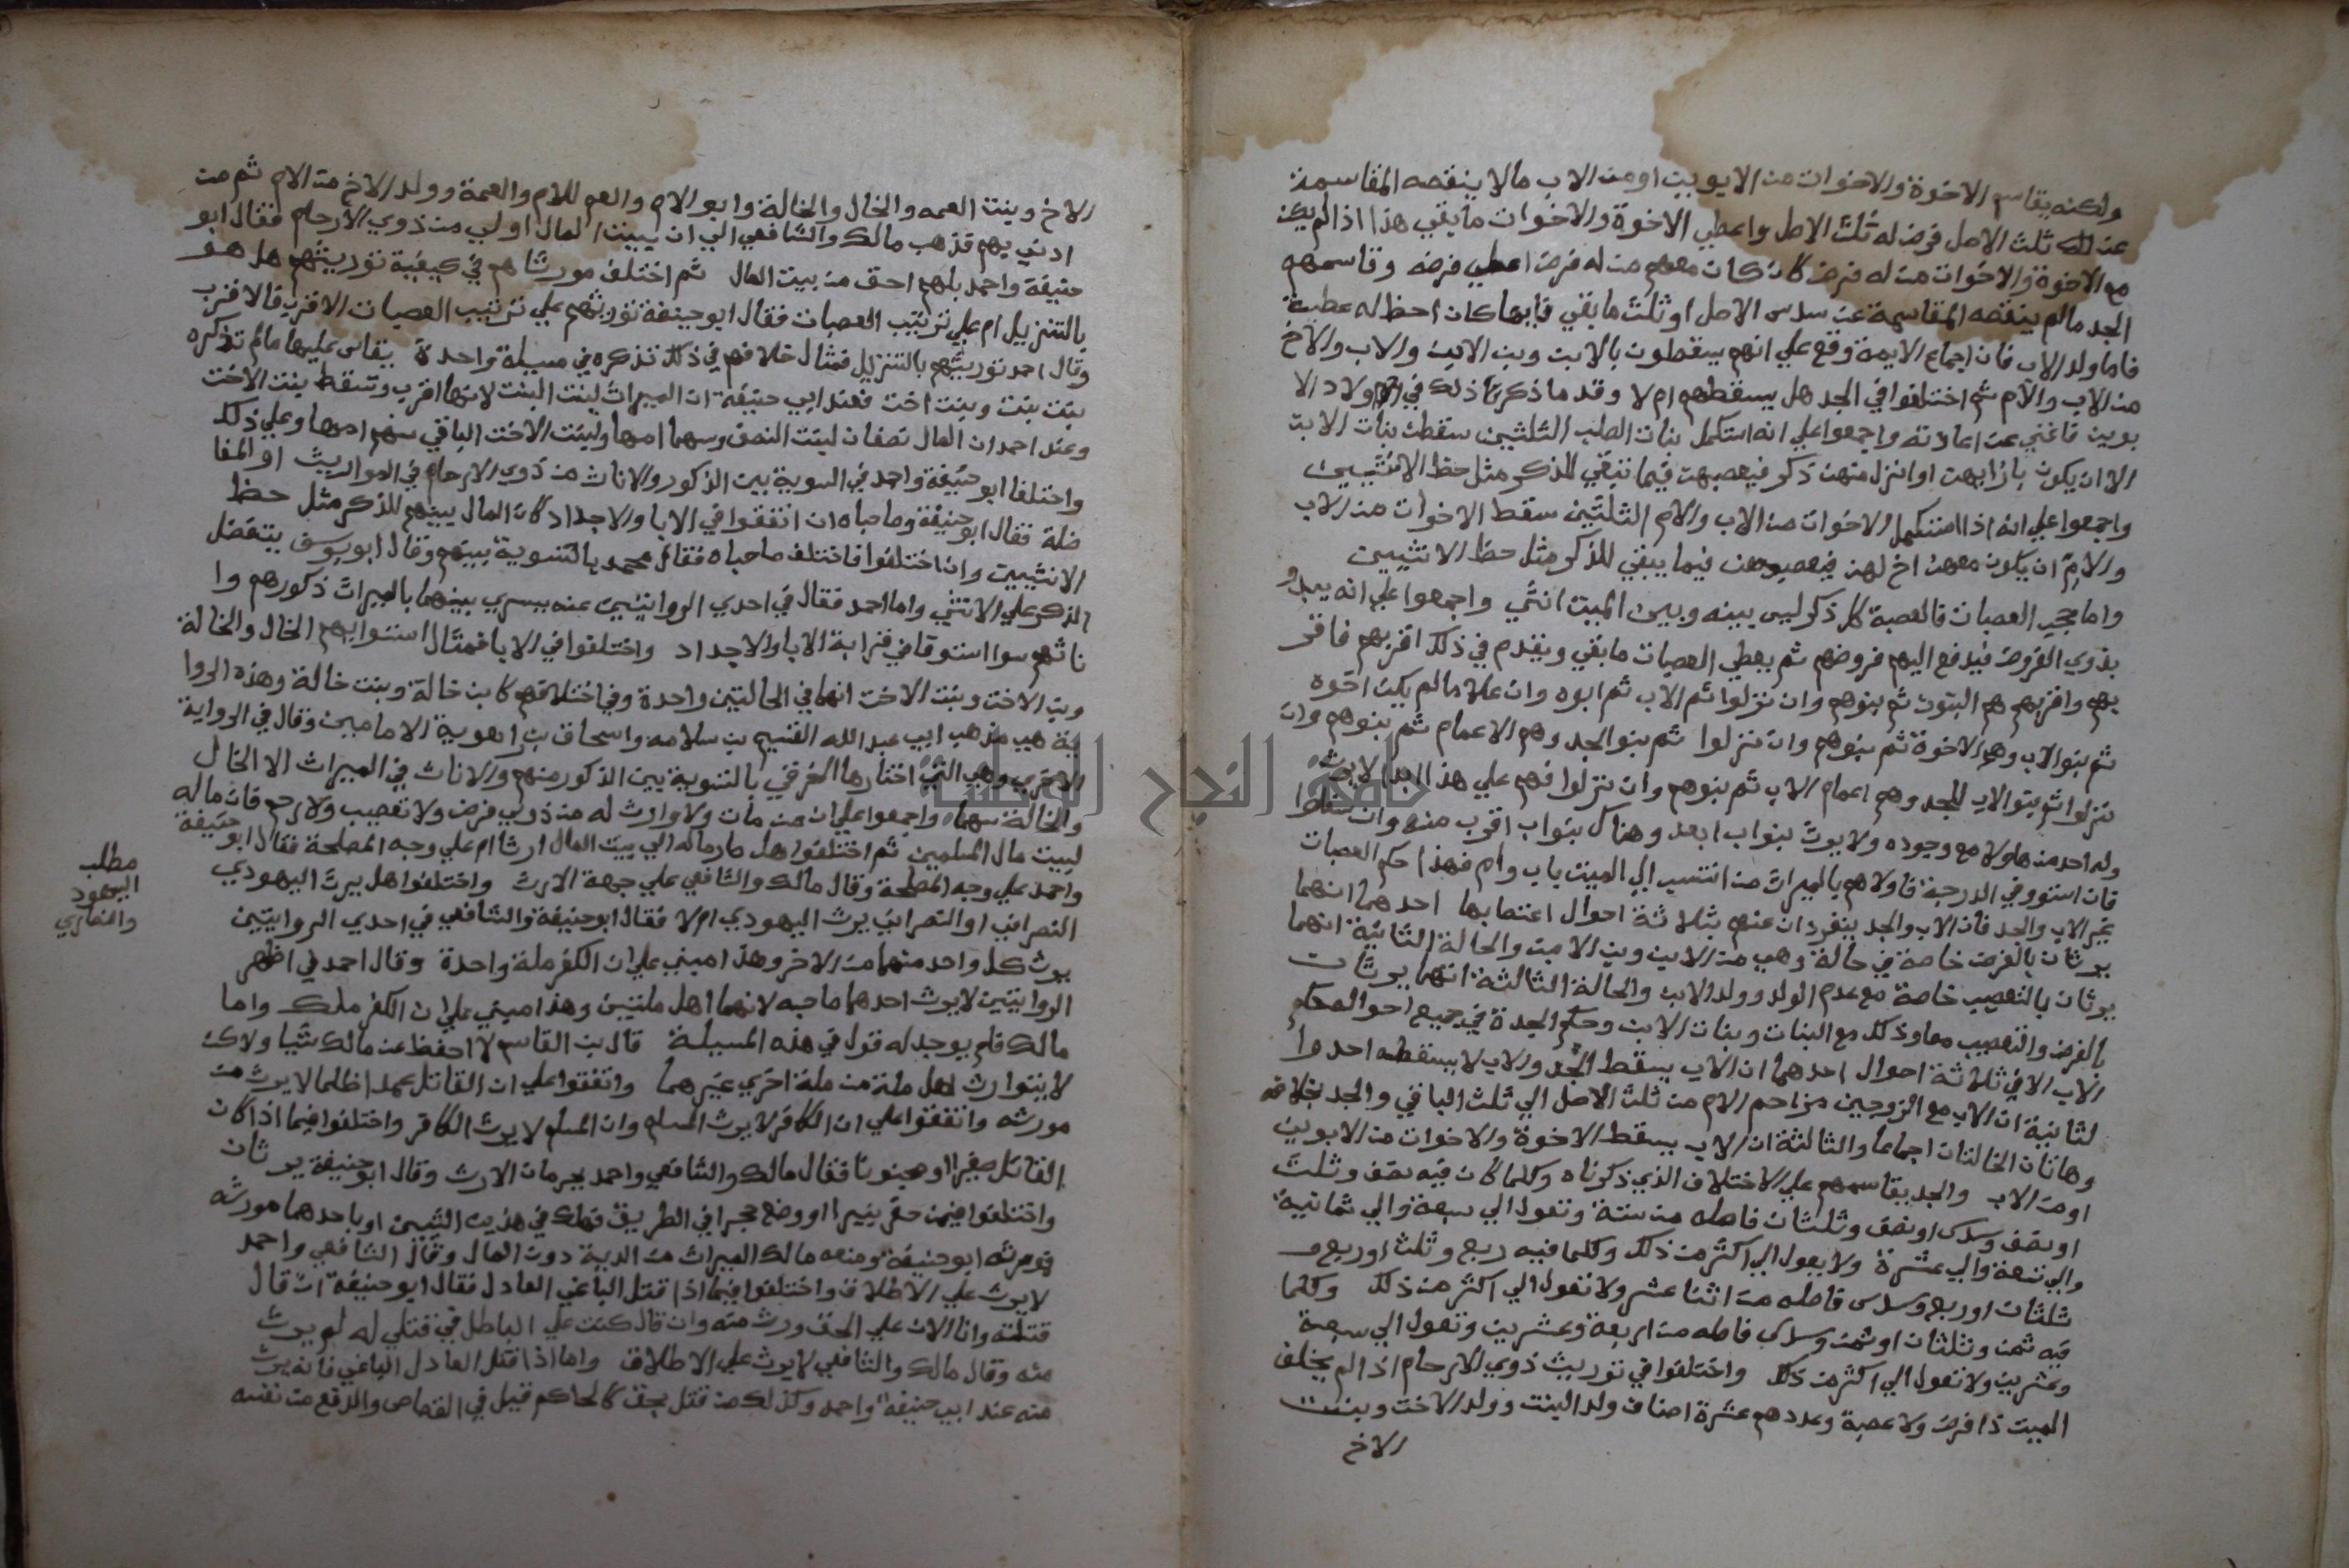 ولكنه يقاسم الاخوة والاخوات من الابويين او من الاب مالا ينقصه المقاسمة
عن ثلث الاصل فرض له ثلث الاصل واعطي الاخوة والاخوات ما يبقي هذا اذا لم يكن
مع الاخوة والاخوات من له فرض كان كان معهم من له فرض اعطي فرضه وقاسمهم
الجد مالم ينقصه المقاسمة عن سدس الاصل او ثلث ما بقي فايها كان احظ له عطية
فاما ولد الاب فان اجماع الايمة وقع علي انهم يسقطون بالابن وبن الابن والاب والاخ
من الاب والام ثم اختلفوا في الجد هل يسقطهم ام لا وقد ما ذكرنا ذلك في اولاد الا
بوين فاغني عن اعادته واجمعوا علي انه استكمل بنات الصلب الثلثين سقطت بنات الابن
الا ان يكون بازايهن او انزل منهن ذكر فيعصبهن فيما تبقي للذكر مثل حظ الانثيين
واجمعوا علي انه اذا استكمل الاخوات من الاب والام الثلثين سقط الاخوات من الاب
والام ان يكون معهن اخ لهن فيعصبوهن فيما يبقي للذكر مثل حظ الانثيين
واما العصبات فالعصبة كل ذكر ليس بينه وبين الميت انثي واجمعوا علي انه يبدو
بذوي الفروض فيدفع اليهم فروضهم ثم يعطي العصبات ما بقي ويقدم في ذلك اقربهم فاقر
بهم واقربهم هم البنون ثم بنوهم وان نزلوا ثم الاب ثم ابوه وان علا مالم يكن اخوه
ثم بنو الاب وهم الاخوة ثم بنوهم وان نزلوا ثم بنو الجد وهم الاعمام ثم بنوهم وان
نزلوا ثم بنو الاب للجد وهم اعمام الاب ثم بنوهم وان نزلوا فهم علي هذا ابدا لا يرث
وله احد منها ولا مع وجوده ولا يورث بنواب ابعد وهناك بنواب اقرب منه وان سفلوا
فان استوو في الدرجة فاولاهم بالميراث من انتسب الي الميت باب وام فهذا حكم العصبات
غير الاب والجد فان الاب والجد ينفردان عنهم بثلاثة احوال اعتصابها احدهما انهما
يرثان بالفرض خاصة في حالة وهي مع الابن وبن الابن والحالة الثانية انهما
يرثان بالتعصيب خاصة مع عدم الولد وولد الابن والحالة الثالثة انهما يرثان
بالفرض والتعصيب معا وذلك مع البنات وبنات الابن وحكم الجدة في جميع احواله حكم
الاب الا في ثلاثة احوال احدهما ان الاب يسقط الجد والاب لا يسقطه احد وا
لثانية ان الاب مع الزوجين مزاحم الام من ثلث الاصل الي ثلث الباقي والجد بخلافه
وهاتان الحالتان اجماعا والثالثة ان الاب يسقط الاخوة والاخوات من الابوين
او من الاب والجد يقاسمهم علي الاختلاف الذي ذكرناه وكلما كان فيه نصف وثلث
او نصف وسدس او نصف وثلثان فاصله من ستة وتعول الي سبعة والي ثمانية
والي تسعة والي عشرة ولا يعول الي اكثر من ذلك وكلما فيه ربع وثلث او ربع و
ثلثان او ربع وسدس فاصله من اثنا عشر ولا تعول الي اكثر من ذلك وكلما
فيه ثمن وثلثان او ثمن وسدس فاصله من اربعة وعشرين وتعول الي سبعة
وعشرين ولا تعول الي اكثر من ذلك واختلفوا في توريث ذوي الارحام اذا لم يخلف
الميت ذا فرض ولا عصبة وعددهم عشرة اصناف ولد البنت وولد الاخت وبنت
الاخ
الاخ وبنت العمه والخال والخالة وابو الام والعم للام والعمة وولد الاخ من الام ثم من
ادني بهم فذهب مالك والشافعي الي ان يبيت المال اولي من ذوي الارحام فقال ابو
حنيفة واحمد بلهم احق من بيت المال ثم اختلف مورثاهم في كيفية توريثهم هل هو
بالتنزيل ام علي ترتيب العصبات فقال ابو حنيفة توريثهم علي ترتيب العصبات الاقرب فالاقرب
وقال احمد توريثهم بالتنزيل فمثال خلافهم في ذلك تذكره في مسيلة واحدة يقاس عليها مالم تذكره
بنت بنت وبنت اخت فعند ابي حنيفة ان الميراث لبنت البنت لانها اقرب وتسقط بنت الاخت
وعند احمد ان المال نصفان لبنت النصف وسهما امها ولبنت الاخت الباقي سهم امها وعلي ذلك
واختلفا ابو حنيفة واحمد في السوية بين الذكور والاناث من ذوي الارحام في المواريث او المفا
ضلة فقال ابو حنيفة وصاحباه ان اتفقوا في الابا والاجداد كان المال بينهم للذكر مثل حظ
الانثيين وان اختلفوا فاختلف صاحباه فقال محمد بالتسوية بينهم وقال ابو يوسف بتفضل
الذكر علي الانثي واما احمد فقال في احدي الروايتين عنه يسري بينهما بالميراث ذكورهم وا
ناثهم سوا استوقا في قرابة الابا والاجداد واختلفوا في الابا فمثال استوايهم الخال والخالة
وبن الاخت وبنت الاخت انهما في الحالتين واحدة وفي اختلافهم كابن خالة وبنت خالة وهذه الروا
ية هي مذهب ابي عبد الله القسم بن سلامه واسحاق بن راهوية الامامين وقال في الرواية
الاخري وهي التي اختارها الخرقي بالتسوية بين الذكور منهم والاناث في الميراث الا الخال
والخالة سهما واجمعوا علي ان من مات ولا وارث له من ذوي فرض ولا تعصيب ولا رحم فان ماله
لبيت مال المسلمين ثم اختلفوا هل صار ماله الي بيت المال ارثا ام علي وجه المصلحة فقال ابو حنيفة
واحمد علي وجه المصلحة وقال مالك والشافعي علي جهة الارث واختلفوا هل يرث اليهودي
النصراني او النصراني يرث اليهودي ام لا فقال ابو حنيفة والشافعي في احدي الروايتين
يرث كل واحد منهما من الاخر وهذا مبني علي ان الكفر ملة واحدة وقال احمد في اظهر
الروايتين لا يرث احدهما صاحبه لانهما اهل ملتين وهذا مبني علي ان الكفر ملك واما
مالك فلم يوجد له قول في هذه المسيلة قال بن القاسم لا احفظ عن مالك شيا ولاكن
لا يتوارث اهل ملة من ملة اخري غيرهما واتفقوا علي ان القاتل عمدا ظلما لا يرث من
مورثه واتفقوا علي ان الكافر لا يرث المسلم وان المسلم لا يرث الكافر واختلفوا فيما اذا كان
القاتل صغيرا او مجنونا فقال مالك والشافعي واحمد بحرمان الارث وقال ابو حنيفة يرثان
واختلفوا فيمن حفر بيرا او وضع حجرا في الطريق فهلك في هذين الشيين او باحدهما مورثه
فورثه ابو حنيفة ومنعه مالك الميراث من الدية دون المال وقال الشافعي واحمد
لا يرث علي الاطلاق واختلفوا فيما اذا قتل الباغي العادل فقال ابو حنيفة ان قال
قتلته وانا الان علي الحق ورث منه وان قال كنت علي الباطل في قتلي له لم يرث
منه وقال مالك والشافعي لا يرث علي الاطلاق واما اذا قتل العادل الباغي فانه يرث
منه عند ابي حنيفة واحمد وكذلك من قتل بحق كالحاكم قيل في القصاص والدفع من نفسه
مطلب
اليهود
والنصاري
جامعة النجاح الوطنية